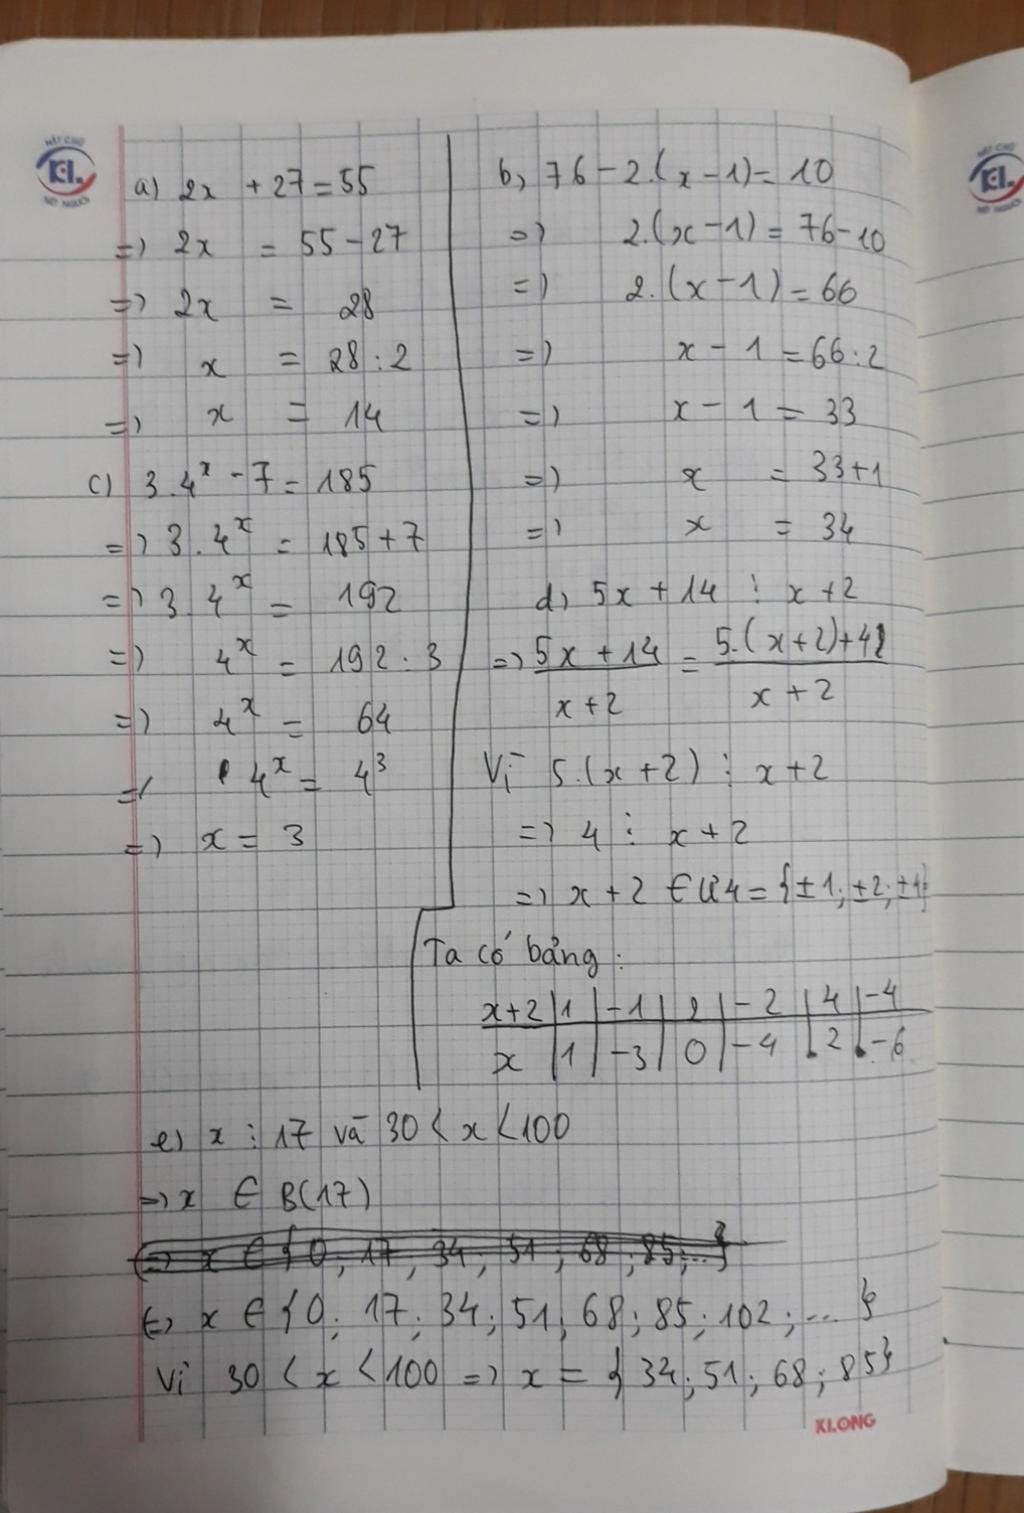 NÉT CHỮ
KL
NẾT NGƯỜI
a) 2x + 27 = 55
=) 2x = 55 - 27
=) 2x = 28
=) x = 28 : 2
=) x = 14
c) 3.4^x - 7 = 185
=) 3.4^x = 185 + 7
=) 3.4^x = 192
=) 4^x = 192 : 3
=) 4^x = 64
=) 4^x = 4^3
=) x = 3
b) 76 - 2.(x - 1) = 10
=) 2.(x - 1) = 76 - 10
=) 2.(x - 1) = 66
=) x - 1 = 66 : 2
=) x - 1 = 33
=) x = 33 + 1
=) x = 34
d) 5x + 14 ⋮ x + 2
=) (5x + 14)/(x + 2) = (5.(x + 2) + 4)/(x + 2)
Vì 5.(x + 2) ⋮ x + 2
=) 4 ⋮ x + 2
=) x + 2 ∈ Ư4 = {±1; ±2; ±4}
Ta có bảng:
x+2 | 1 | -1 | 2 | -2 | 4 | -4
x | 1 | -3 | 0 | -4 | 2 | -6
e) x ⋮ 17 và 30 < x < 100
=) x ∈ B(17)
=) x ∈ {0; 17; 34; 51; 68; 85; ...}
=) x ∈ {0; 17; 34; 51; 68; 85; 102; ... }
Vì 30 < x < 100 =) x = {34; 51; 68; 85}
KLONG
NÉT CHỮ
KL
NẾT NGƯỜI